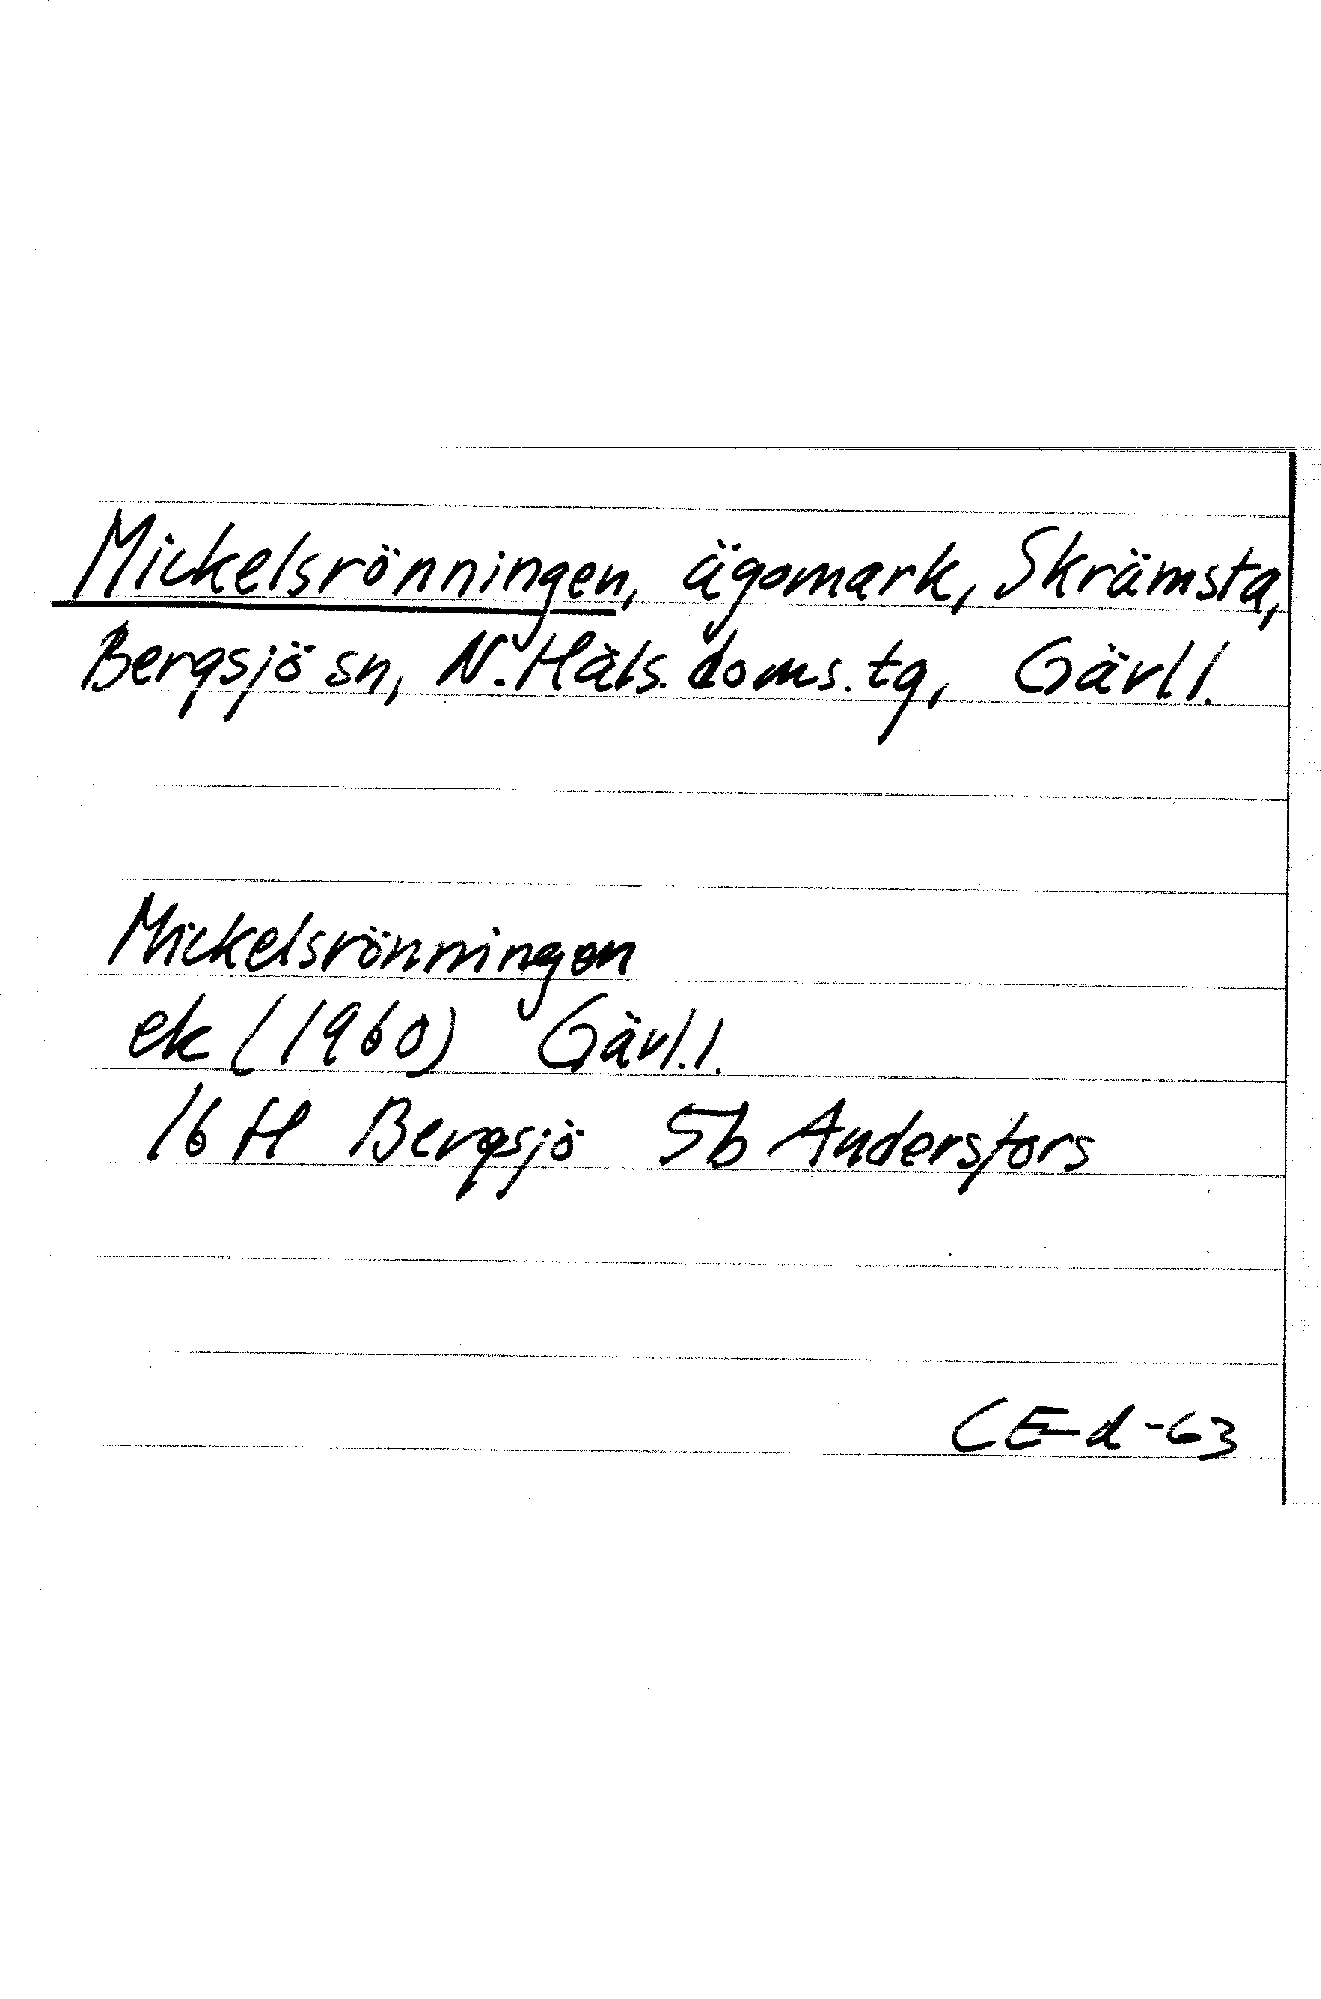 Mickelsrönningen, ägomark, Skrämsta,
Bergsjö sn, N. Häls. doms. tg, Gävl l.
Mickelsrönningen
ek (1960) Gävl. l.
16 H Bergsjö 5b Andersfors
CE-d -63